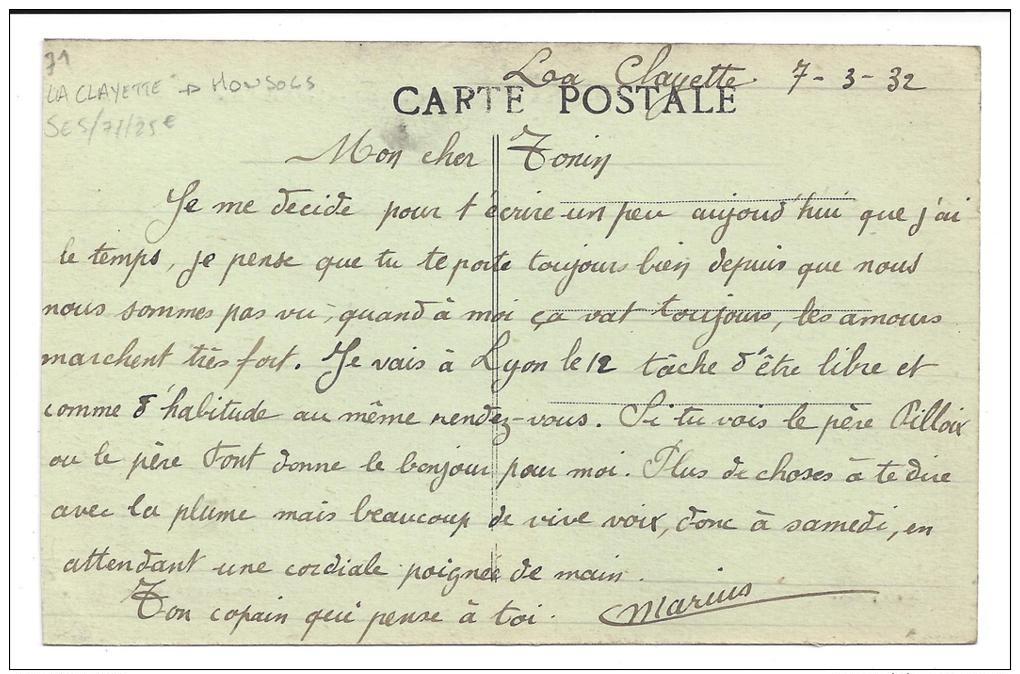 71
LA CLAYETTE → MONSOLS
SES/71/25€
La Clayette 7-3-32
CARTE POSTALE
Mon cher Tonin
Je me decide pour t'écrire un peu aujourd'hui que j'ai
le temps, je pense que tu te porte toujours bien depuis que nous
nous sommes pas vu, quand à moi ça vat toujours, les amours
marchent très fort. Je vais à Lyon le 12 tâche d'être libre et
comme d'habitude au même rendez-vous. Si tu vois le père Pilloix
ou le père Font donne le bonjour pour moi. Plus de choses à te dire
avec la plume mais beaucoup de vive voix, donc à samedi, en
attendant une cordiale poignée de main.
Ton copain qui pense à toi. Marius